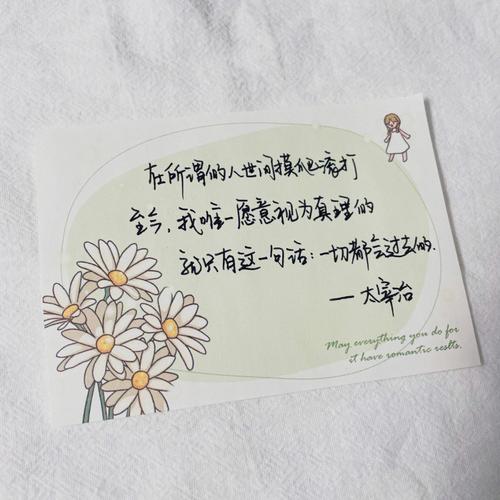 在所谓的人世间摸爬滚打
至今，我唯一愿意视为真理的
就只有这一句话：一切都会过去的.
— 太宰治
May everything you do for
it have romantic reslts.